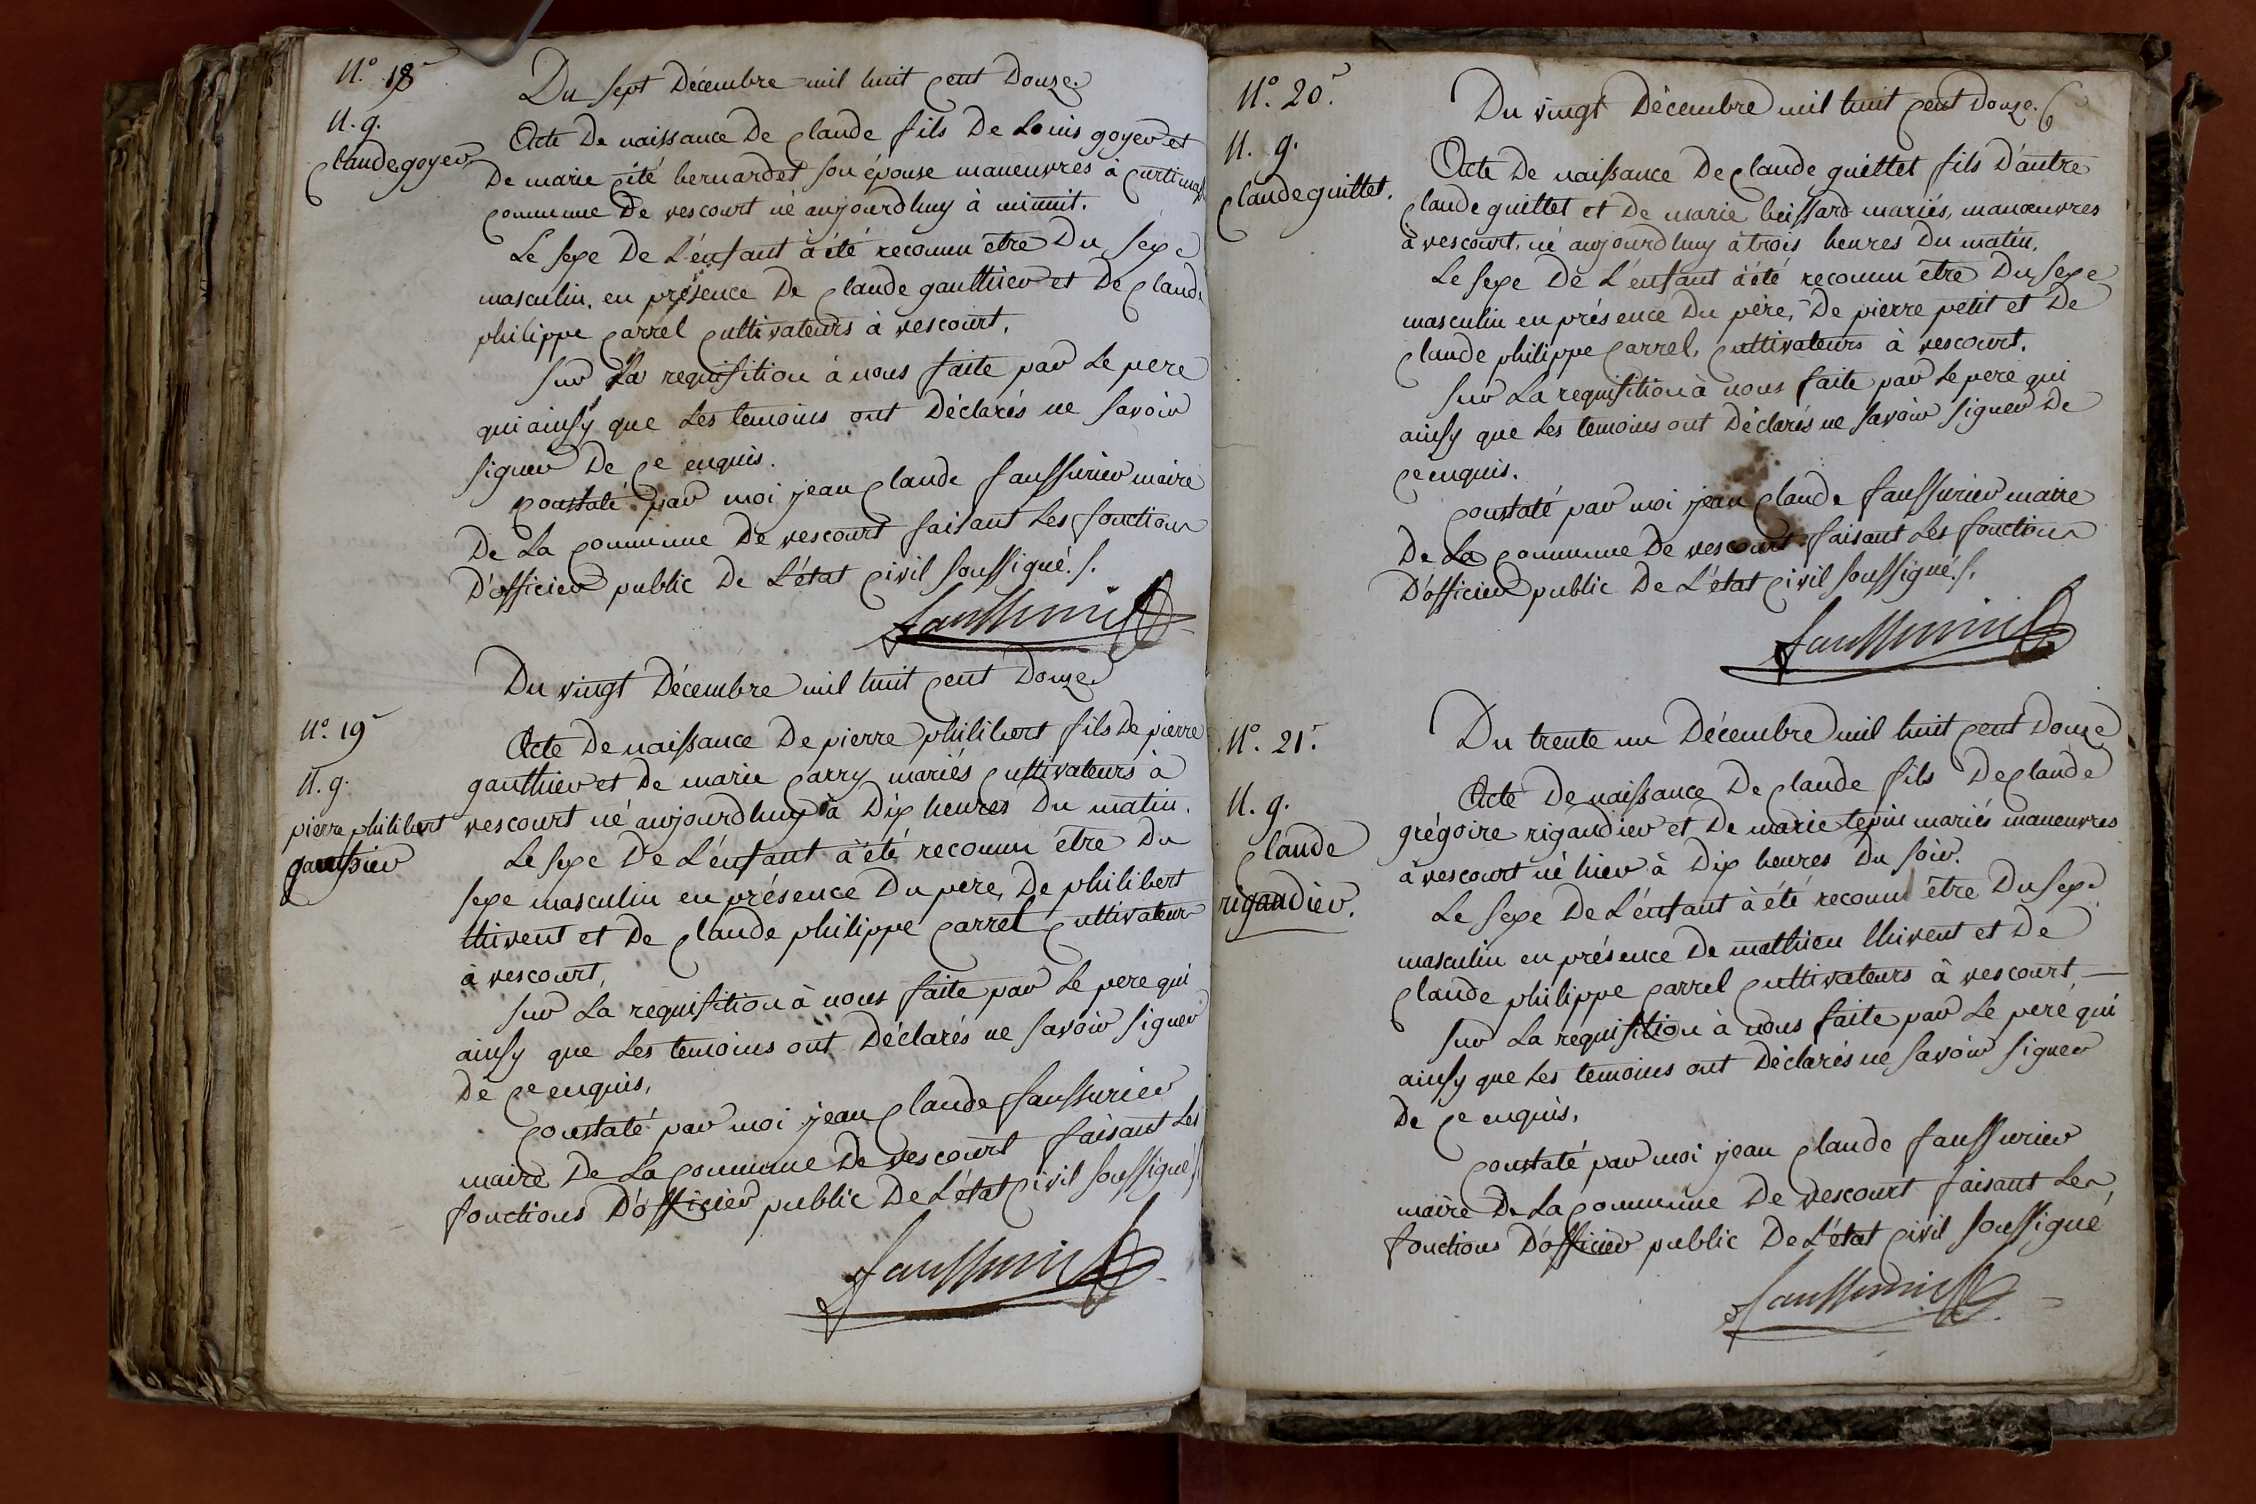 N.º 18
N. g.
Claude goyer
Du sept Décembre mil huit Cent Douze
Acte De naissance De Claude fils De Louis goyer et
De marie bernardet son épouse maneuvres à
Commune De vescourt né aujourdhuy à minuit.
Le sexe De L'énfant à été reconnu être Du sexe
masculin. en présence De Claude gauthier et De Claude
philippe Carrel Cultivateurs à vescourt,
sur La requisition à nous faite par Le pere
qui ainsy que Les temoins ont Déclarés ne savoir
signer De Ce enquis.
Constaté par moi jean Claude faussurier maire
De La Commune De vescourt faisant Les fonctions
D'officier public De L'état Civil soussigné. /.
faussurier
N.º 19
N. g.
pierre philibert
gauthier
Du vingt Décembre mil huit Cent Douze
Acte De naissance De pierre philibert fils De pierre
gauthier et De marie Carry mariés Cultivateurs à
vescourt né aujourdhuy à Dix heures Du matin.
Le sexe De L'énfant à été reconnu être Du
sexe masculin en présence Du pere, De philibert
thivent et De Claude philippe Carrel Cultivateurs
à vescourt,
sur La requisition à nous faite par Le pere qui
ainsy que Les temoins ont Déclarés ne savoir signer
De Ce enquis,
Constaté par moi jean Claude faussurier
maire De La Commune De vescourt faisant Les
fonctions D'officier public De L'état Civil soussigné /.
faussurier
N.º 20.
N. g.
Claude guittet.
Du vingt Décembre mil huit Cent Douze. 6
Acte De naissance De Claude guittet fils D'autre
Claude guittet et De marie mariés, manœuvres
à vescourt, né aujourdhuy à trois heures Du matin.
Le sexe De L'énfant à été reconnu être Du sexe
masculin en présence Du père, De pierre petit et De
Claude philippe Carrel, Cultivateurs à vescourt.
sur La requisition à nous faite par Le pere qui
ainsy que Les temoins ont Déclarés ne savoir signer De
Ce enquis.
Constaté par moi jean Claude faussurier maire
De La Commune De vescourt faisant Les fonctions
D'officier public De L'état Civil soussigné. /.
faussurier
N.º 21.
N. g.
Claude
rigaudier.
Du trente un Décembre mil huit Cent Douze
Acte De naissance De Claude fils De Claude
grégoire rigaudier et De marie mariés maneuvres
à vescourt né hier à Dix heures Du soir.
Le sexe De L'énfant à été reconnu être Du sexe
masculin en présence De mathieu thivent et De
Claude philippe Carrel Cultivateurs à vescourt —
sur La requisition à nous faite par Le pere qui
ainsy que Les temoins ont Déclarés ne savoir signer
De Ce enquis,
Constaté par moi jean Claude faussurier
maire De La Commune De vescourt faisant Les
fonctions D'officier public De L'état Civil soussigné
faussurier